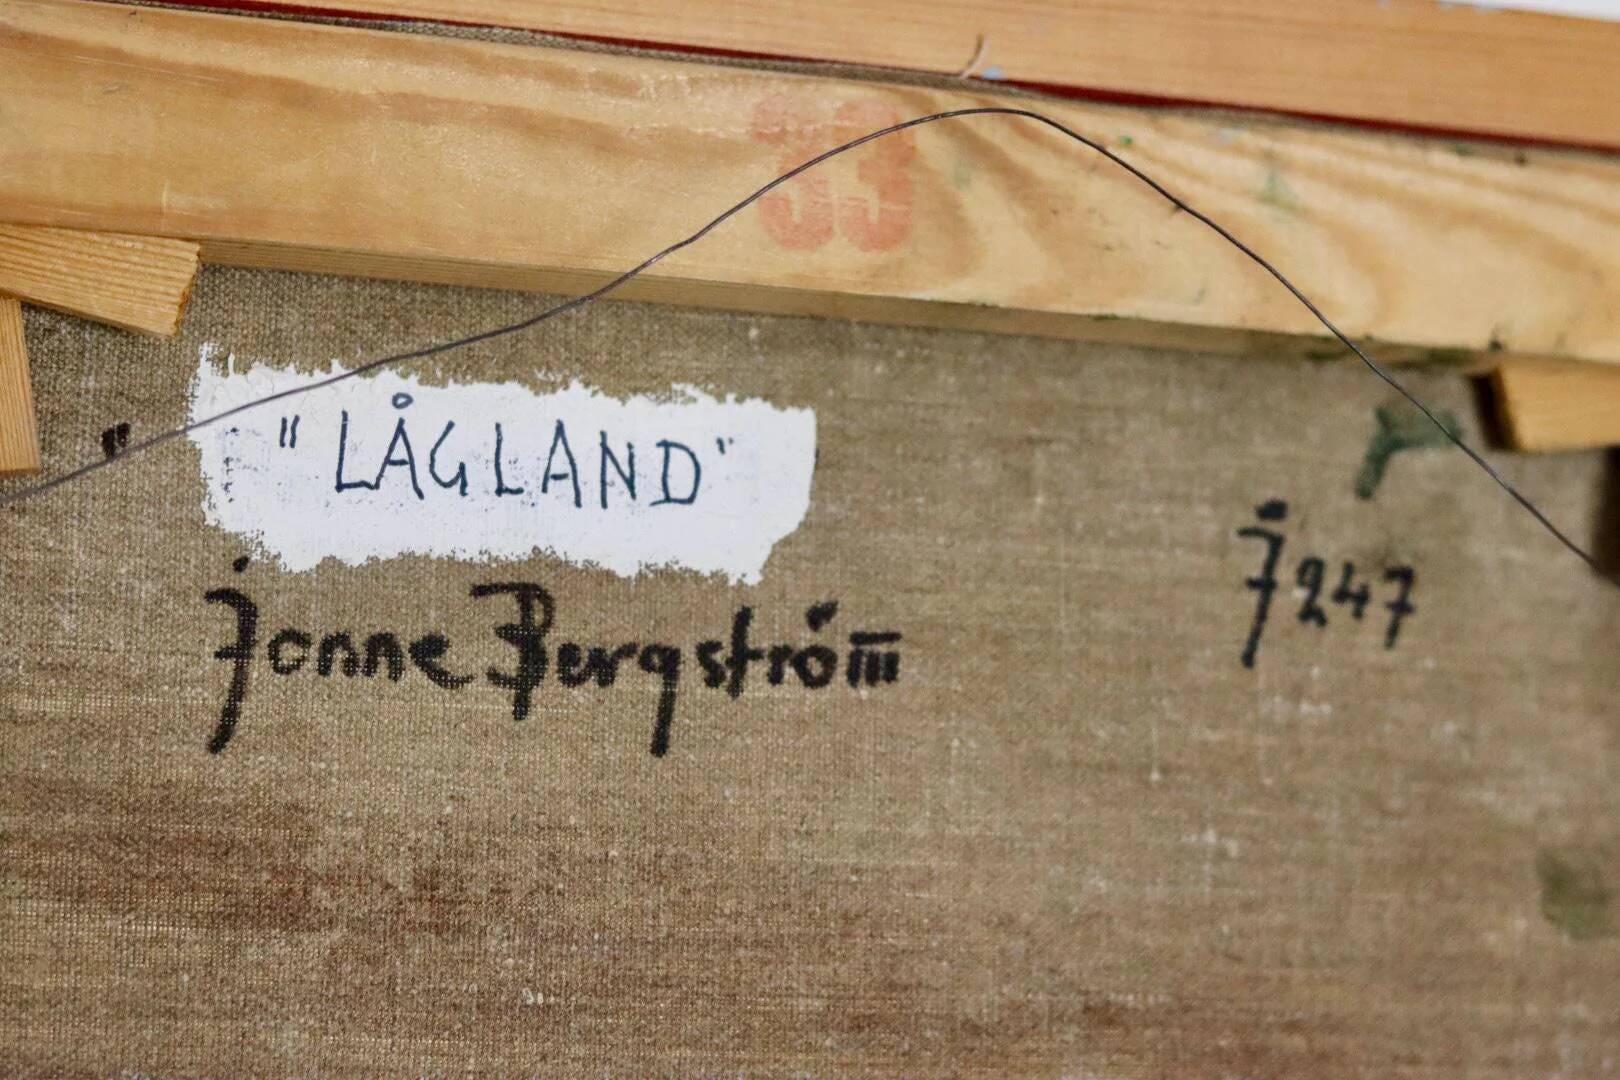 33
" "LÅGLAND"
Jonne Bergström
J247